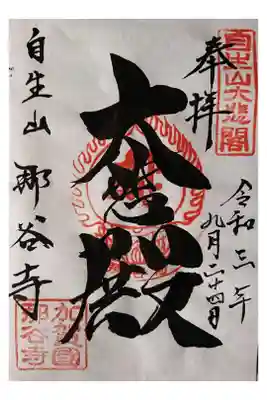 自生山大悲閣
奉拝
令和三年
九月二十四日
大悲殿
自生山
那谷寺
加賀國
那谷寺